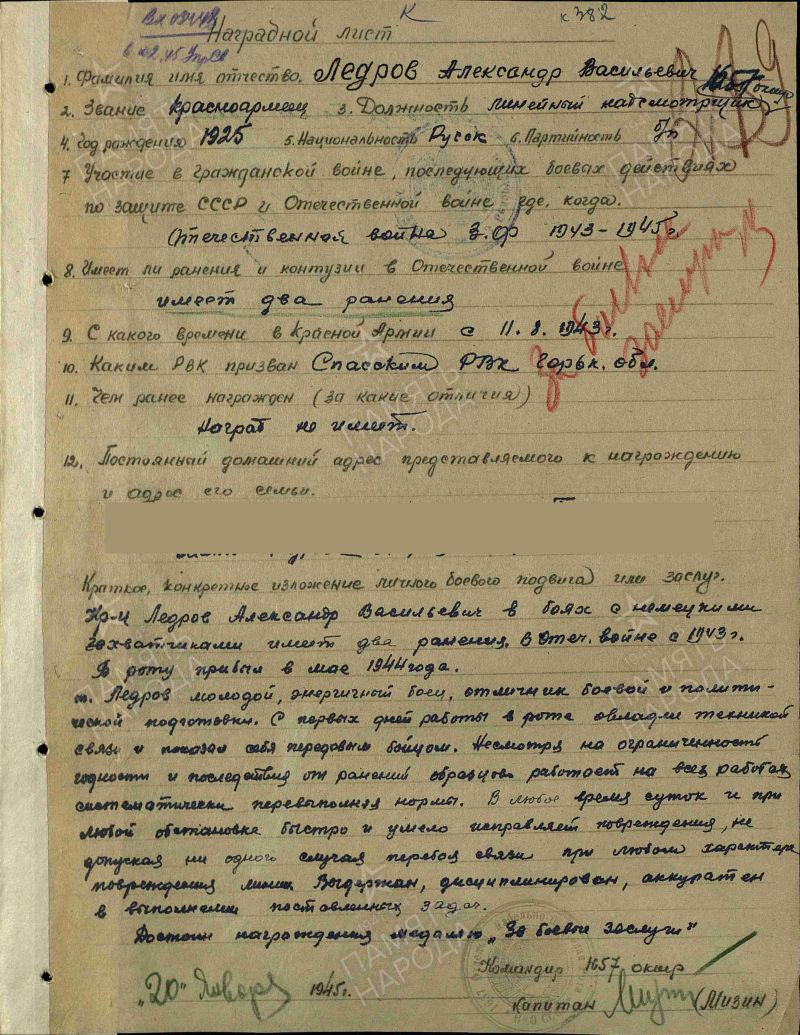 к 382
Наградной лист
1. Фамилия имя отчество. Ледров Александр Васильевич 1657 оклср
2. Звание Красноармеец 3. Должность линейный надсмотрщик
4. год рождения 1925 5. Национальность Русск 6. Партийность б/п
7 Участие в гражданской войне, последующих боевых действиях
по защите СССР и Отечественной войне где, когда.
Отечественная война З.Ф 1943-1945г
8. Имеет ли ранения и контузии в Отечественной войне
имеет два ранения
9. С какого времени в Красной Армии с 11.8.1943г.
10. Каким РВК призван Спасским РВК Горьк. обл.
11. Чем ранее награжден (за какие отличия)
Наград не имеет.
12. Постоянный домашний адрес представляемого к награждению
и адрес его семьи.
За боевые заслуги
Краткое, конкретное изложение личного боевого подвига или заслуг.
Кр-ц Ледров Александр Васильевич в боях с немецкими
захватчиками имеет два ранения. В Отеч. войне с 1943г.
В роту прибыл в мае 1944 года.
т. Ледров молодой, энергичный боец, отличник боевой и полити-
ческой подготовки. С первых дней работы в роте овладел техникой
связи и показал себя передовым бойцом. Несмотря на ограниченность
годности и последствия от ранений образцово работает на всех работах
систематически перевыполняя нормы. В любое время суток и при
любой обстановке быстро и умело исправляет повреждения, не
допуская ни одного случая перебоя связи при любом характере
повреждения линии. Выдержан, дисциплинирован, аккуратен
в выполнении поставленных задач.
Достоин награждения медалью „За боевые заслуги"
Командир 1657 оклср
„20" Января 1945г. капитан (Мизин)
ПАМЯТЬ НАРОДА